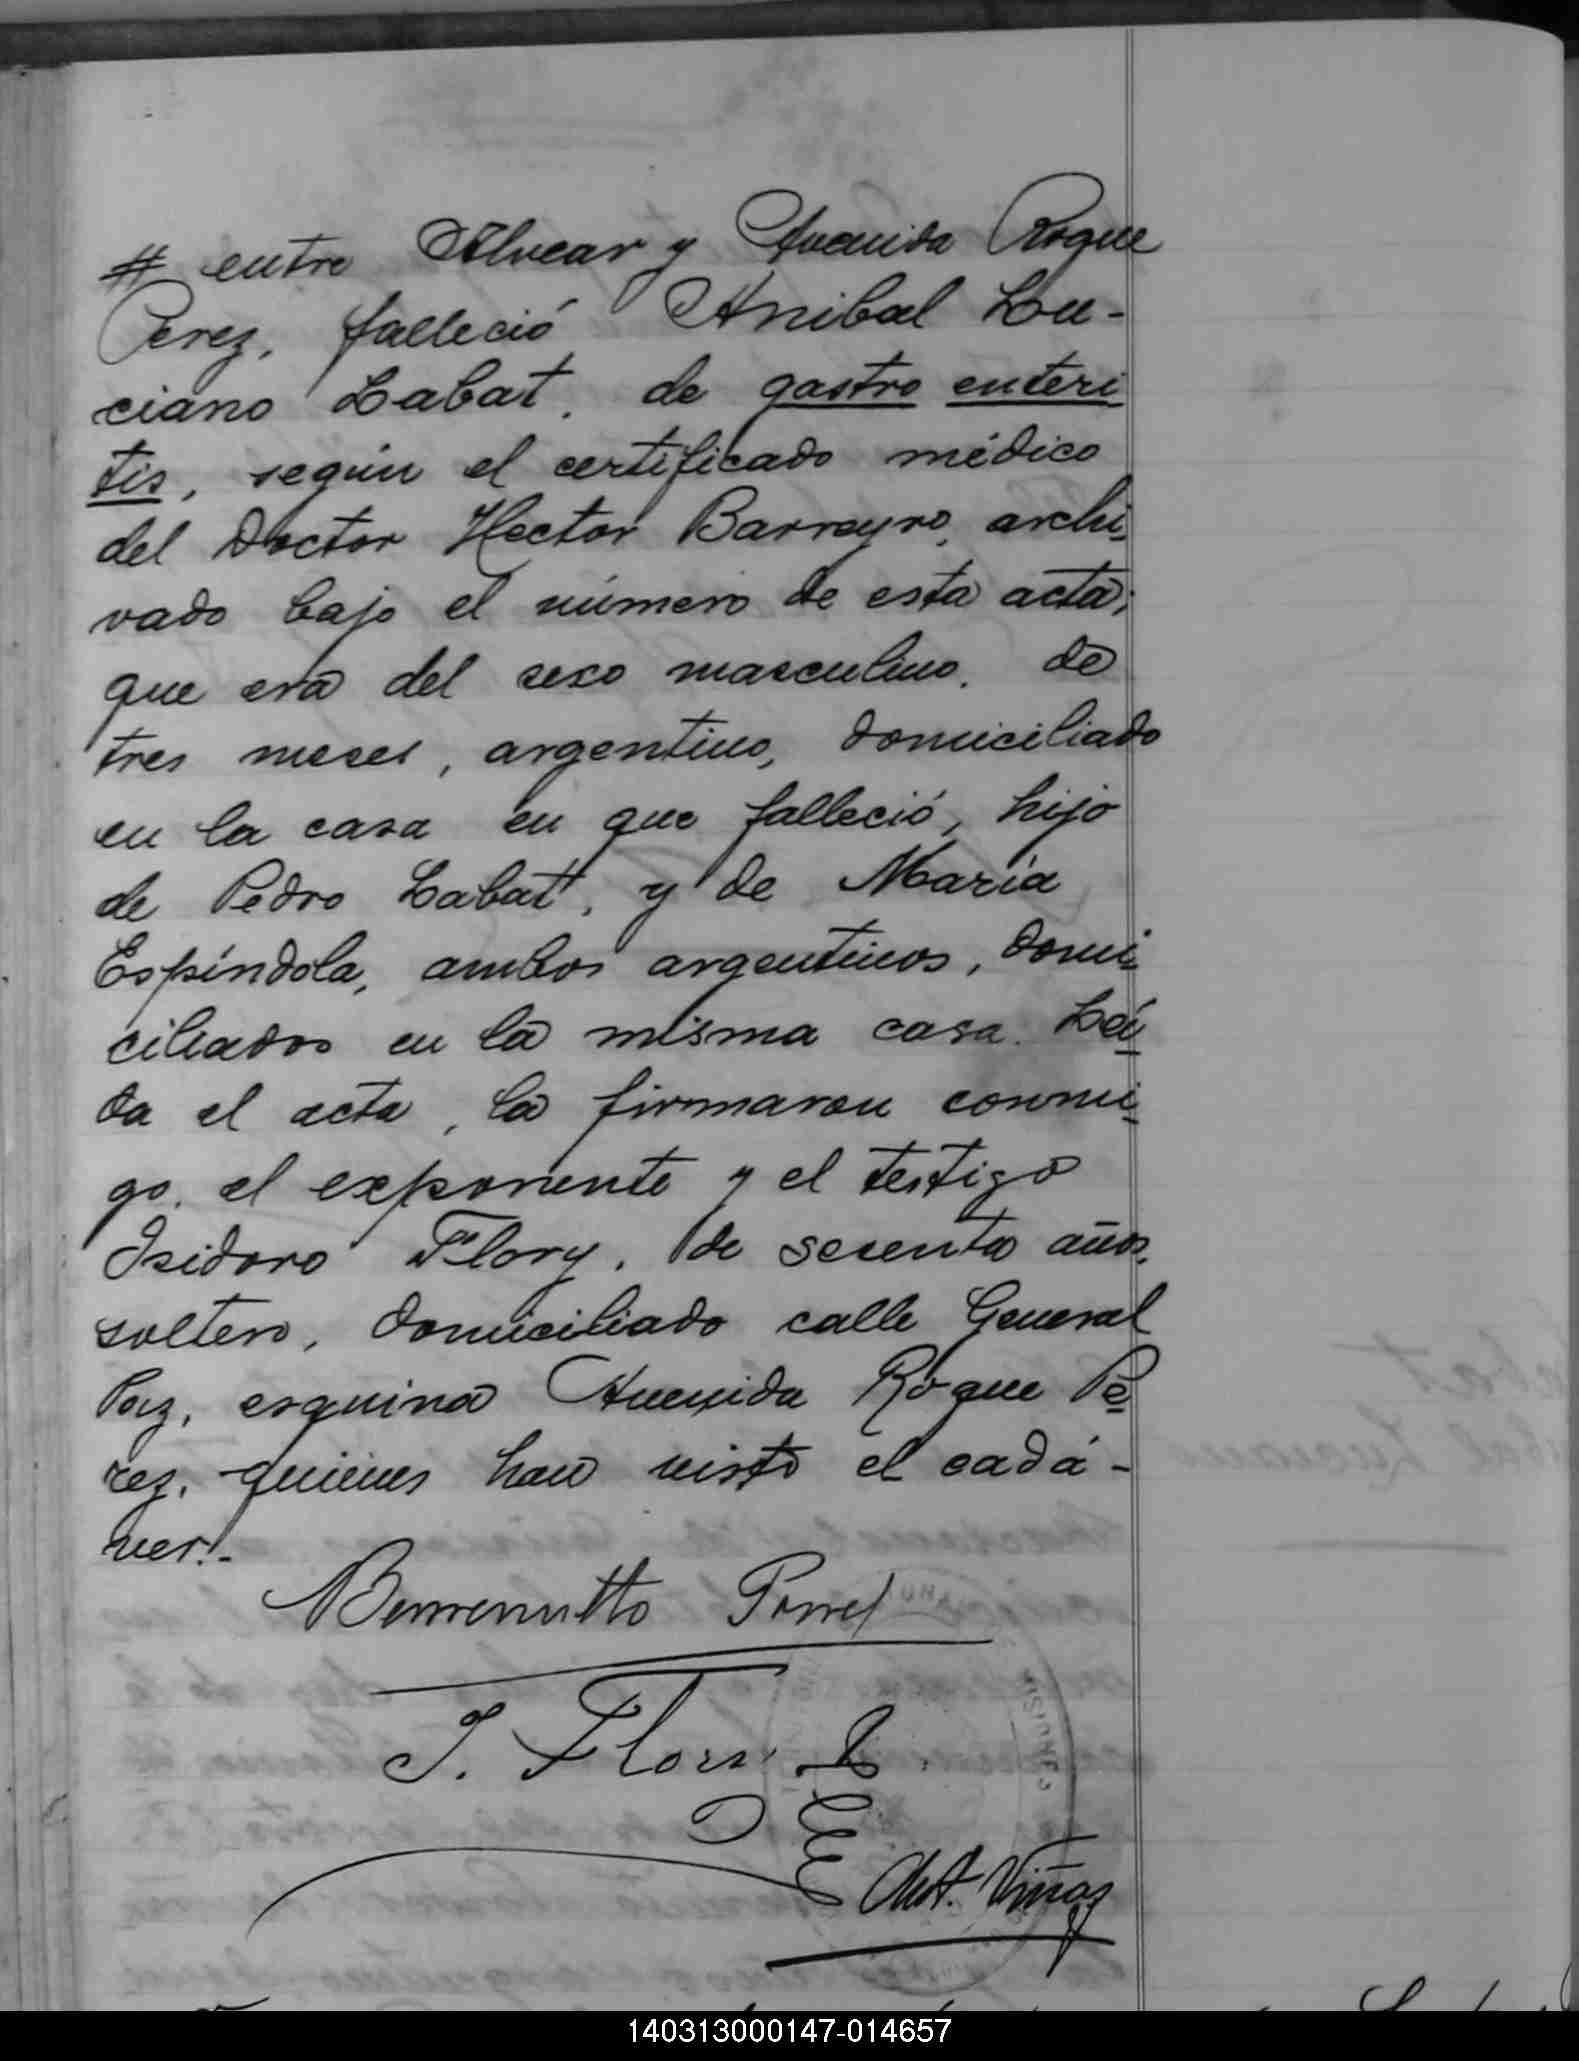 # entre Alvear y Avenida Roque
Perez, falleció Anibal Lu-
ciano Labat, de gastro enteri
tis, según el certificado médico
del Doctor Hector Barreyro, archi-
vado bajo el número de esta acta;
que era del sexo masculino, de
tres meses, argentino, domiciliado
en la casa en que falleció, hijo
de Pedro Labat, y de María
Espíndola, ambos argentinos, domi-
ciliados en la misma casa. Leí-
da el acta, la firmaron conmi-
go, el exponente y el testigo
Isidoro Flory, de sesenta años,
soltero, domiciliado calle General
Paz, esquina Avenida Roque Pe-
rez, quienes han visto el cadá-
ver.-
Benvenutto
J. Flory
Ant. Viñas
MISIONES
140313000147-014657